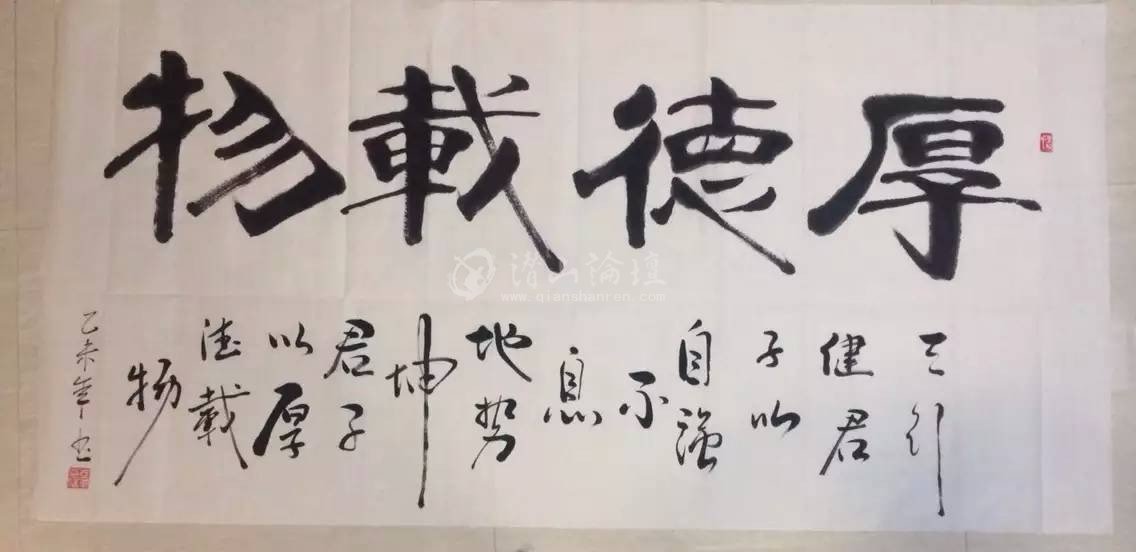 厚德載物
天行
健君
子以
自強
不
息
地势
坤
君子
以厚
德載
物
乙未年书
潜山論壇
www.qianshanren.com